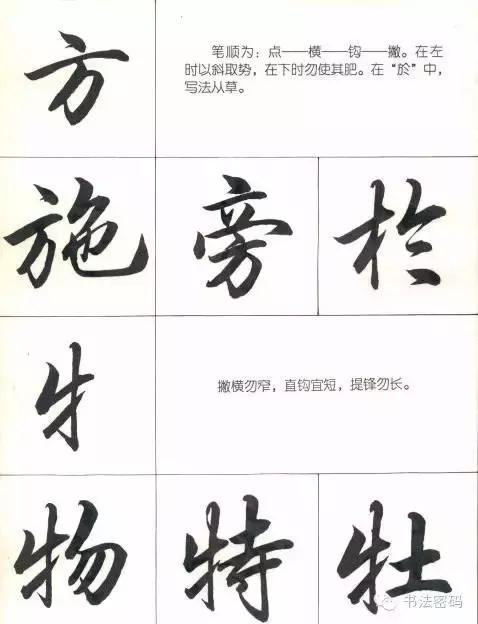 方
笔顺为：点——横——钩——撇。在左
时以斜取势，在下时勿使其肥。在“於”中，
写法从草。
施 旁 於
牜
撇横勿窄，直钩宜短，提锋勿长。
物 特 牡
书法密码